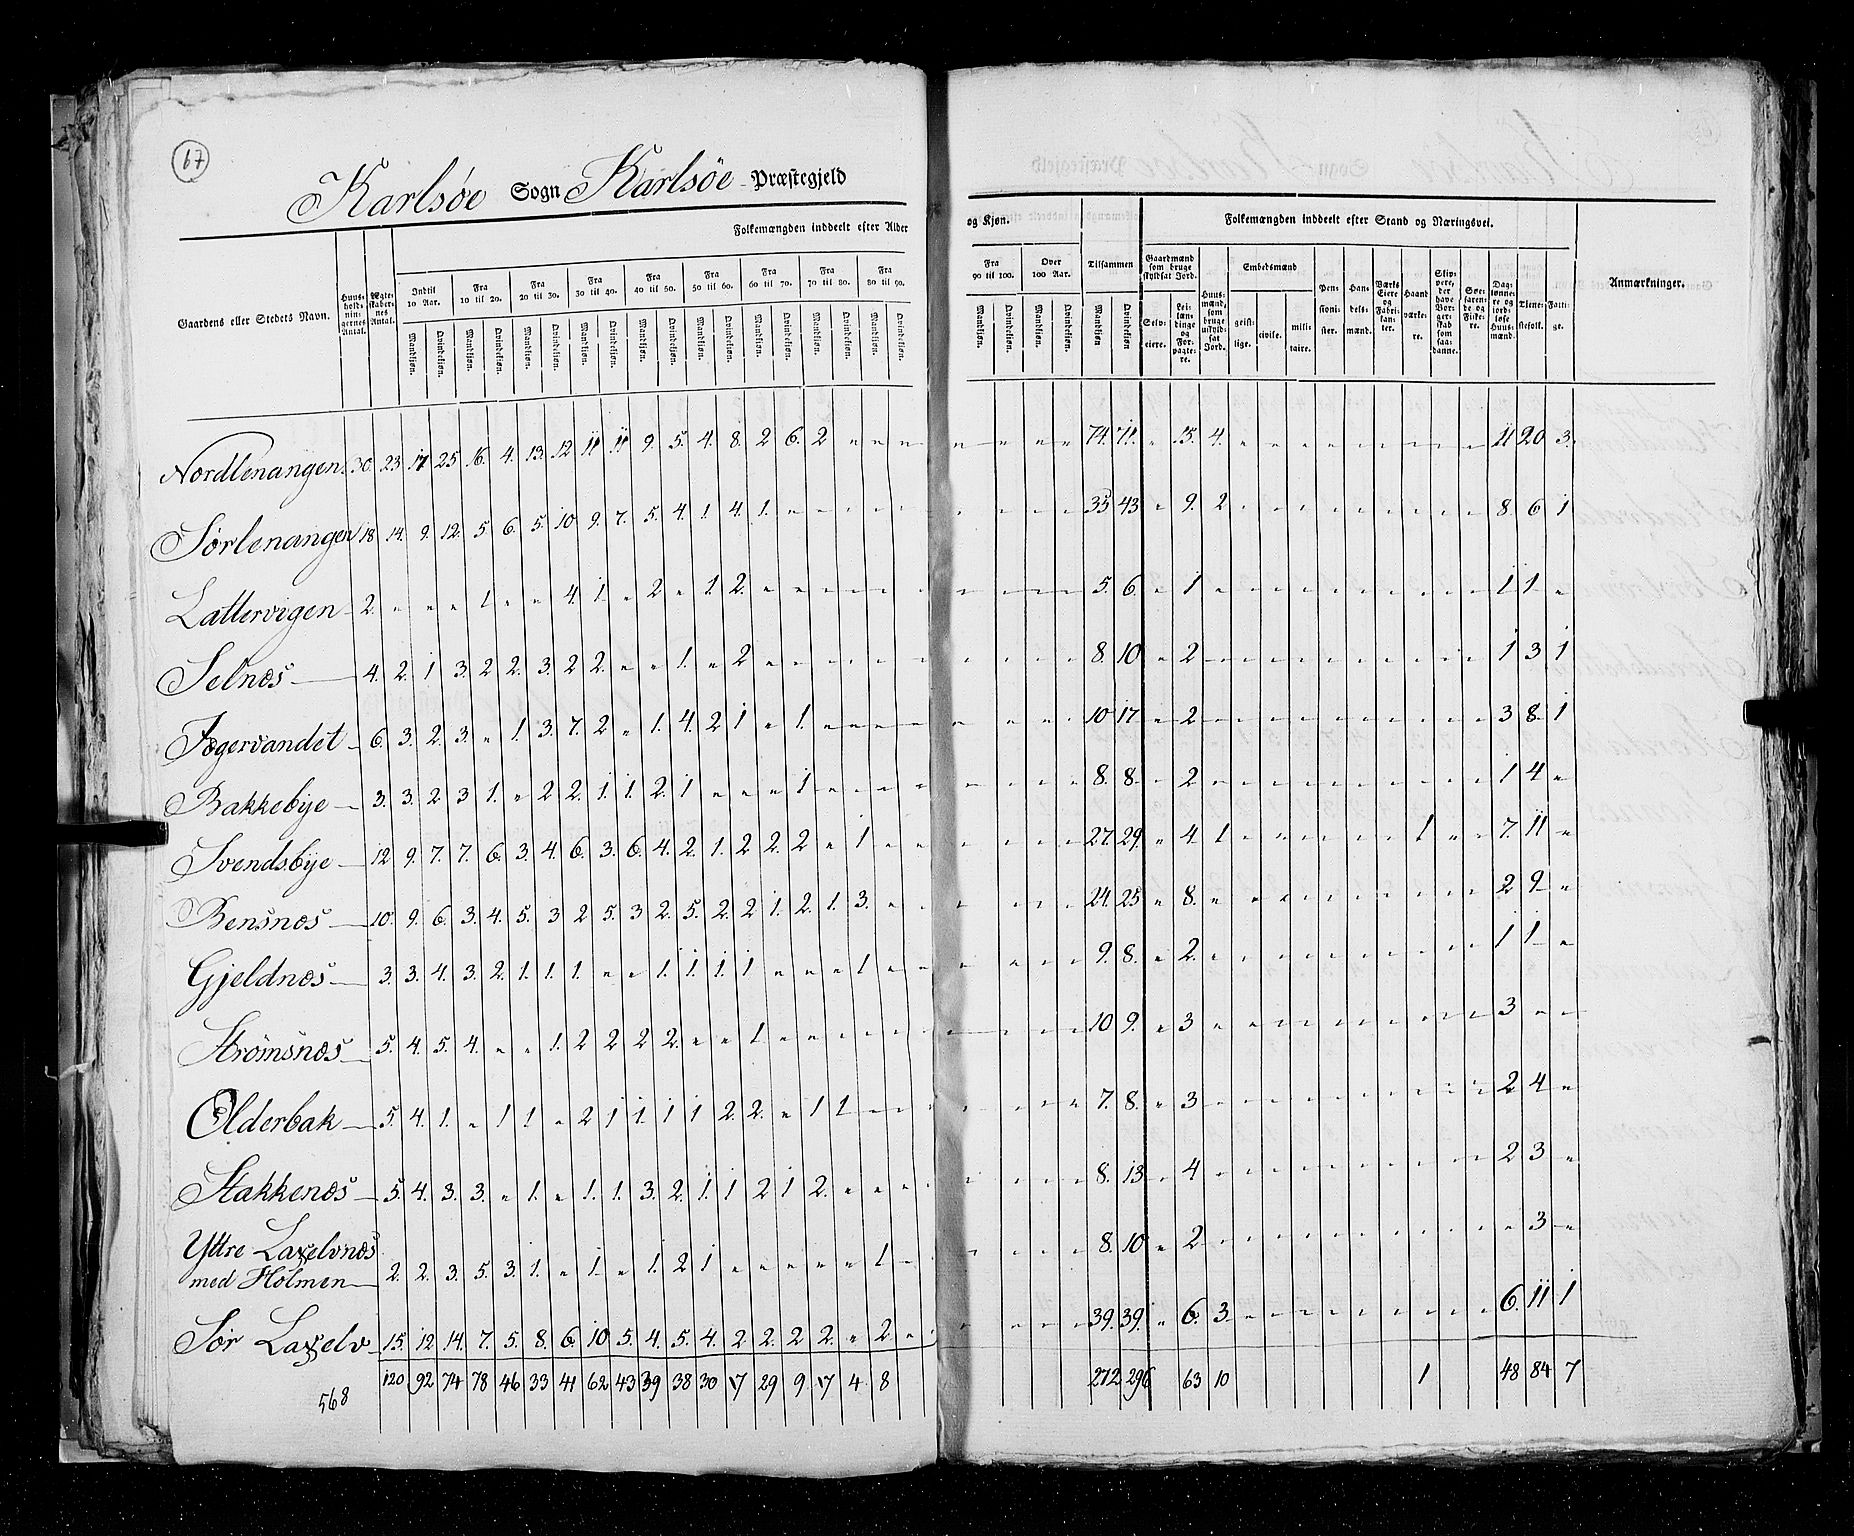 67
Karlsøe Sogn Karlsöe Præstegjeld
Folkemængden inddeelt efter Alder og Kjøn. Folkemængden inddeelt efter Stand og Næringsvei.
Gaardens eller Stedets Navn. Huusholdningernes Antal. Ægteskabernes Antal. Indtil 10 Aar. Fra 10 til 20. Fra 20 til 30. Fra 30 til 40. Fra 40 til 50. Fra 50 til 60. Fra 60 til 70. Fra 70 til 80. Fra 80 til 90. Fra 90 til 100. Over 100 Aar. Tilsammen Gaardmænd som bruge skyldsat Jord. Huusmænd, som bruge uskyldsat Jord. Embedsmænd Pensionister. Handelsmænd. Værks Eiere og Fabrikanter. Haandværkere. Skippere, der have Borgerskab som saadanne. Selveiere og Fiskere. Daglønnere og jordløse Huusmænd. Tjenestefolk. Fattige. Anmærkninger.
Mandkjøn. Qvindekjøn. Mandkjøn. Qvindekjøn. Mandkjøn. Qvindekjøn. Mandkjøn. Qvindekjøn. Mandkjøn. Qvindekjøn. Mandkjøn. Qvindekjøn. Mandkjøn. Qvindekjøn. Mandkjøn. Qvindekjøn. Mandkjøn. Qvindekjøn. Mandkjøn. Qvindekjøn. Mandkjøn. Qvindekjøn. Mandkjøn Qvindekjøn Selveiere. Leilændinge og Forpagtere. geistlige. civile. militaire.
Nordlenangen 30. 23. 17 25 16. 4. 13. 12 11 11 9. 5. 4. 8. 2 6. 2 " " " " " " " 74. 71. " 15. 4. " " " " " " " " " 11 20 3.
Sørlenangen 18 14. 9. 12. 5 6. 5. 10 9. 7. 5. 4. 1. 4. 1. " " " " " " " " " 35 43 " 9. 2 " " " " " " " " " 8. 6 1
Lattervigen 2. " " " 1. " " 4. 1. " 2 " 1. 2. " " " " " " " " " " 5. 6. " 1 " " " " " " " " " " 1 1. "
Selnæs 4. 2. 1 3. 2 2. 3. 2 2. " " 1. " 2 " " " " " " " " " " 8. 10 " 2 " " " " " " " " " " 1 3 1
Jægervandet 6. 3. 2. 3. " 1. 3. 7. 2 " 1. 4. 2 1 " 1. " " " " " " " " 10 17 " 2 " " " " " " " " " " 3 8 1
Bakkebye 3. 3. 2 3 1. " 2 2. 1. 1. 2. 1 " " " 1. " " " " " " " " 8. 8. " 2 " " " " " " " " " " 1 4 "
Svendsbye 12 9. 7. 7. 6. 3. 4. 6. 3. 6. 4. 2. 1. 2 2. 2 " 1 " " " " " " 27. 29. " 4 1. " " " " " " 1 " " 7. 11 "
Bensnæs 10. 9. 6. 3. 4. 5. 3 2 5. 3 2. 5. 2. 2 1. 2. 1. 3. " " " " " " 24. 25 " 8. " " " " " " " " " " 2 9. "
Gjeldnæs 3. 3. 4. 3. 2. 1. 1. 1. " " 1. 1. 1. 1 " " " 1 " " " " " " 9. 8. " 2. " " " " " " " " " " 1 1. "
Strømsnæs 5. 4. 5. 4. " " 1. 2 2 2 2. " " 1. " " " " " " " " " " 10 9. " 3 " " " " " " " " " " 3 " "
Olderbak 5. 4. 1. " 1 1. " 2 1 1. 1 1 2. 2. " 1 1. " " " " " " " 7. 8. " 3 " " " " " " " " " " 2 4 "
Stakkenæs 5. 4. 3. 3. " 1. " 1. 1. 3. 2. 1. 1 2 1 2. " " " " " " " " 8. 13 " 4 " " " " " " " " " " 2 3 "
Yttre Laxelvnæs
med Holmen 2. 2. 3. 5. 3. 1. " 1. " 1. 2 1 " " " " " 1. " " " " " " 8. 10 " 2 " " " " " " " " " " " 3 "
Sør Laxelv 15. 12. 14. 7. 5. 8. 6. 10. 5. 4. 5. 4. 2 2. 2 2. " 2 " " " " " " 39. 39. " 6. 3. " " " " " " " " " 6. 11 1
568 120 92 74 78 46 33 41 62 43 39 38 30 17 29 9 17 4 8 272 296 63 10 1 48 84 7